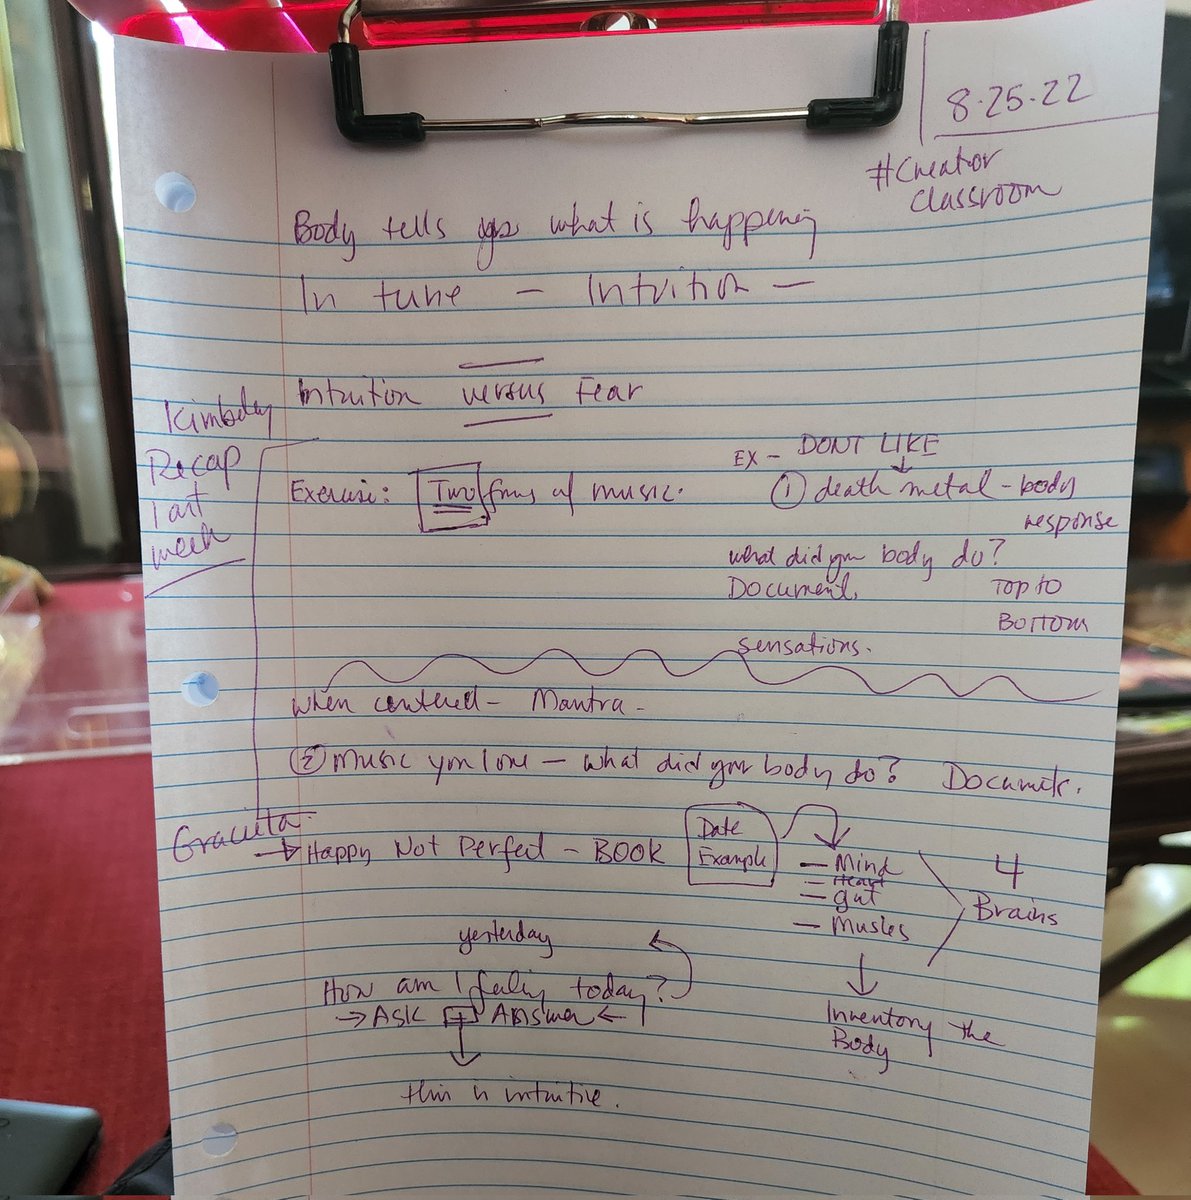 8.25.22
#Creator
Classroom
Body tells you what is happening
In tune - Intuition -
Intuition versus Fear
Kimberley
Recap
last
week
EX - DONT LIKE
Exercise: Two forms of music.
① death metal - body
response
what did your body do?
Document.
Top to
Bottom
sensations.
When centered - Mantra -
② Music you love - what did your body do? Document.
Graciela
→ Happy Not Perfect - BOOK
Date
Example
- Mind
- Heart
- gut
- Musles
4
Brains
yesterday
How am I feeling today?
→ ASK + Answer ←
Inventory the
Body
this is intuitive.